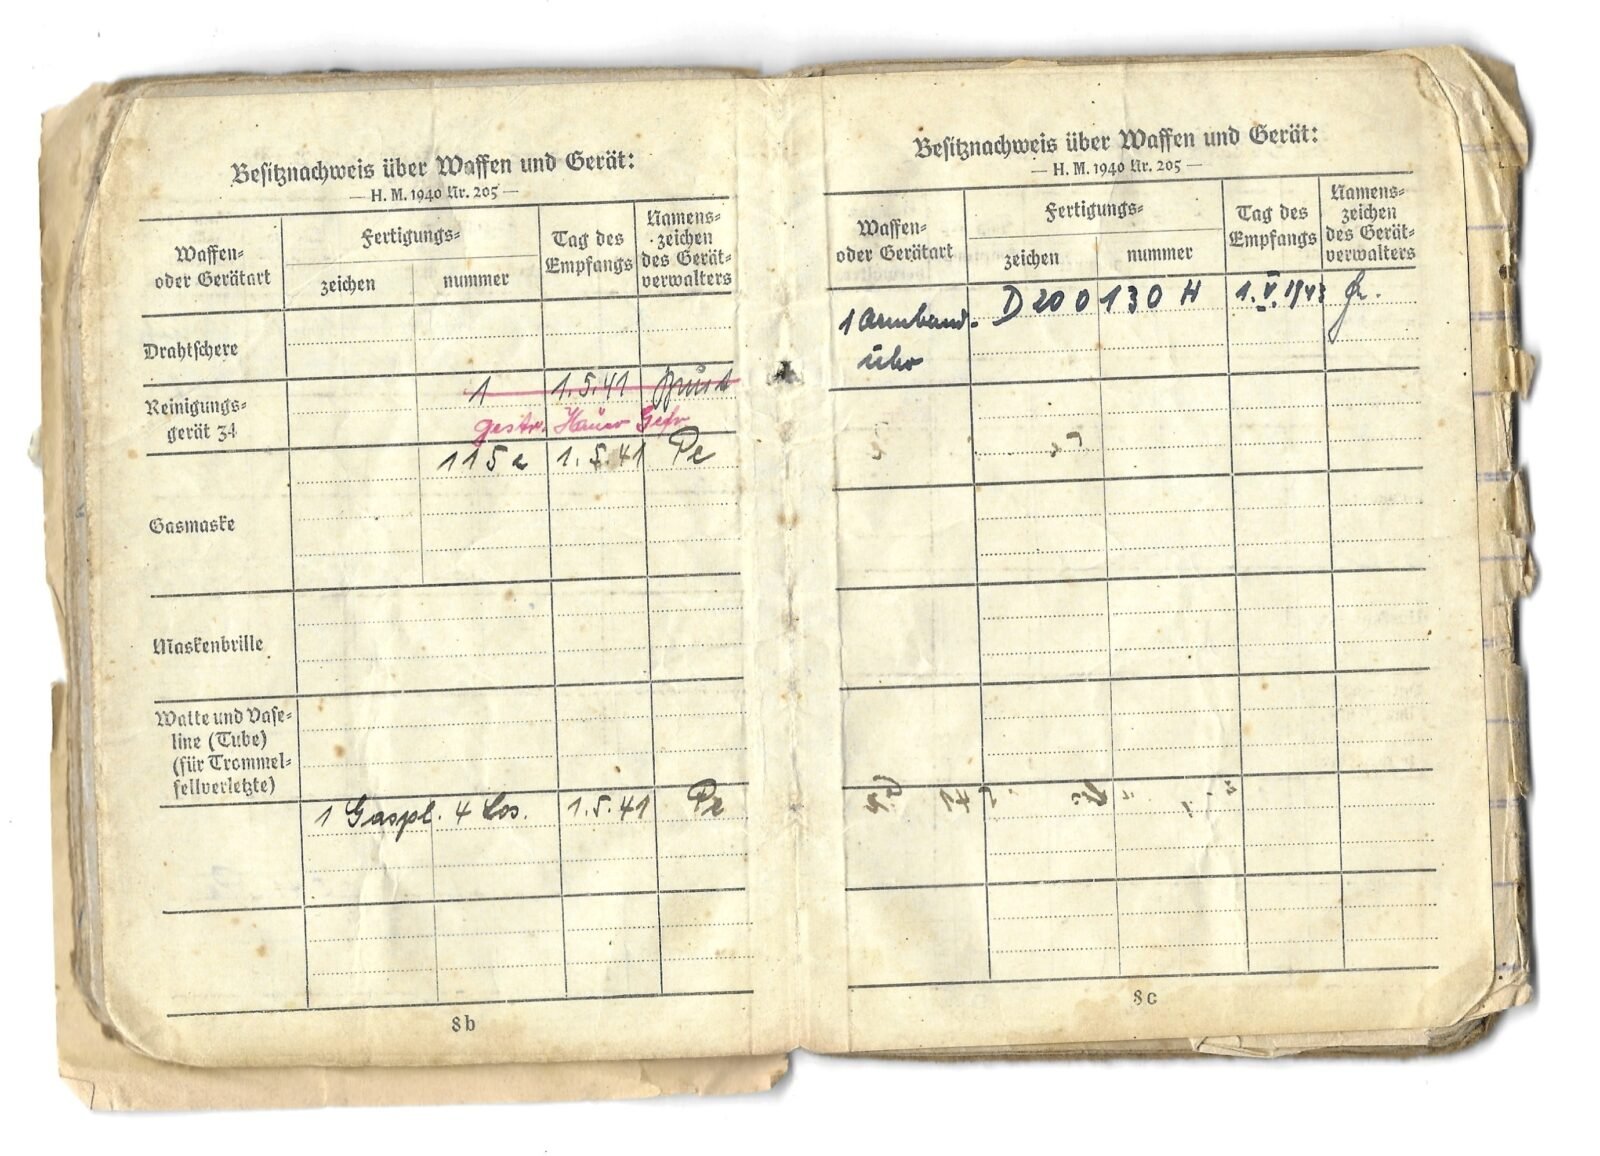 Besitznachweis über Waffen und Gerät:
— H. M. 1940 Nr. 205 —
Waffen-
oder Gerätart
Fertigungs-
zeichen
nummer
Tag des
Empfangs
Namens-
zeichen
des Gerät-
verwalters
Drahtschere
Reinigungs-
gerät 34
1 1.5.41
gestr. Gefr
Gasmaske
1.5.41 Pe
Maskenbrille
Watte und Vase-
line (Tube)
(für Trommel-
fellverletzte)
1 Gaspl. 4 Los. 1.5.41 Pe
8b
Besitznachweis über Waffen und Gerät:
— H. M. 1940 Nr. 205 —
Waffen-
oder Gerätart
Fertigungs-
zeichen
nummer
Tag des
Empfangs
Namens-
zeichen
des Gerät-
verwalters
1 Armband- D 200130 H 1.V.1943
uhr
8c